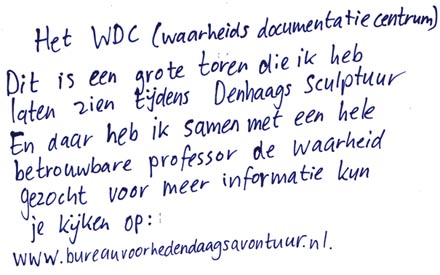 Het WDC (waarheids documentatie centrum)
Dit is een grote toren die ik heb
laten zien tijdens Denhaags Sculptuur
En daar heb ik samen met een hele
betrouwbare professor de waarheid
gezocht voor meer informatie kun
je kijken op:
www.bureauvoorhedendaagsavontuur.nl.